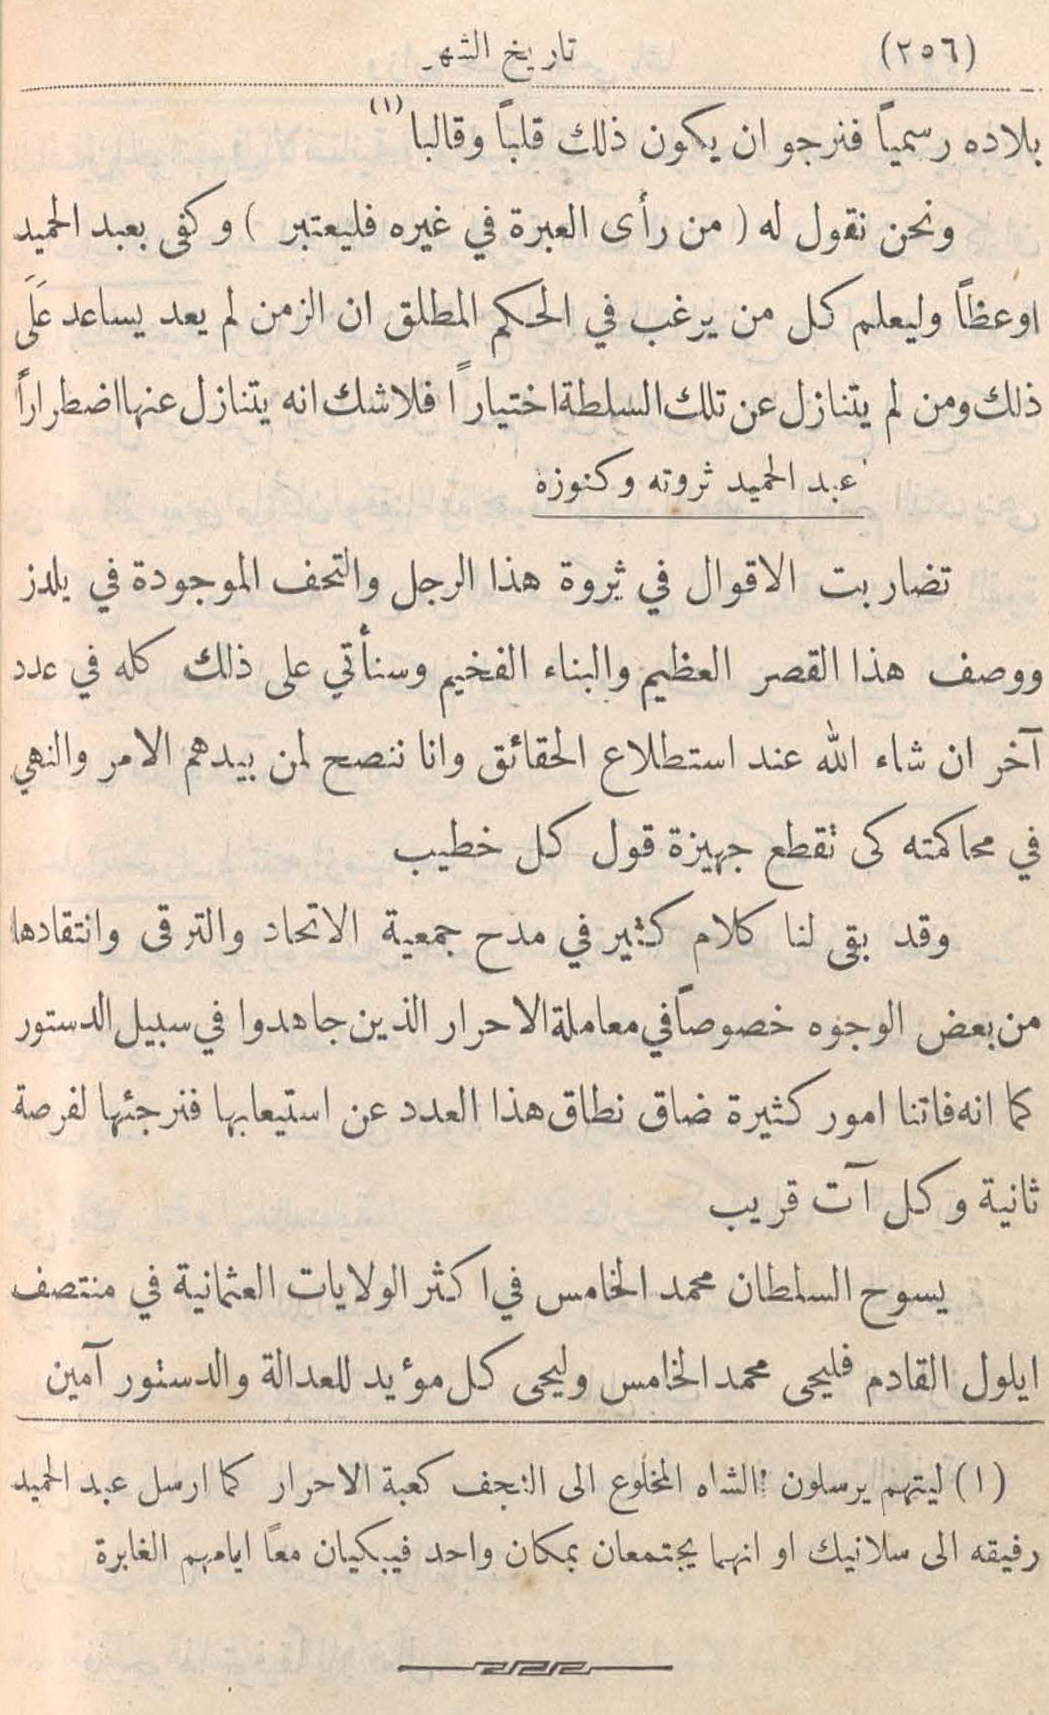 (٢٥٦) تاريخ الشهر
بلاده رسمياً فنرجو ان يكون ذلك قلباً وقالبا (١)
ونحن نقول له ( من رأى العبرة في غيره فليعتبر ) وكفى بعبد الحميد
اوعظاً وليعلم كل من يرغب في الحكم المطلق ان الزمن لم يعد يساعد عَلَى
ذلك ومن لم يتنازل عن تلك السلطة اختياراً فلا شك انه يتنازل عنها اضطراراً
عبد الحميد ثروته وكنوزه
تضاربت الاقوال في ثروة هذا الرجل والتحف الموجودة في يلدز
ووصف هذا القصر العظيم والبناء الفخيم وسنأتي على ذلك كله في عدد
آخر ان شاء الله عند استطلاع الحقائق وانا ننصح لمن بيدهم الامر والنهي
في محاكمته كى تقطع جهيزة قول كل خطيب
وقد بقى لنا كلام كثير في مدح جمعية الاتحاد والترقى وانتقادها
من بعض الوجوه خصوصاً في معاملة الاحرار الذين جاهدوا في سبيل الدستور
كما انه فاتنا امور كثيرة ضاق نطاق هذا العدد عن استيعابها فنرجئها لفرصة
ثانية وكل آت قريب
يسوح السلطان محمد الخامس في اكثر الولايات العثمانية في منتصف
ايلول القادم فليحى محمد الخامس وليحى كل مؤيد للعدالة والدستور آمين
(١) ليتهم يرسلون الشاه المخلوع الى النجف كعبة الاحرار كما ارسل عبد الحميد
رفيقه الى سلانيك او انهما يجتمعان بمكان واحد فيبكيان معاً ايامهم الغابرة